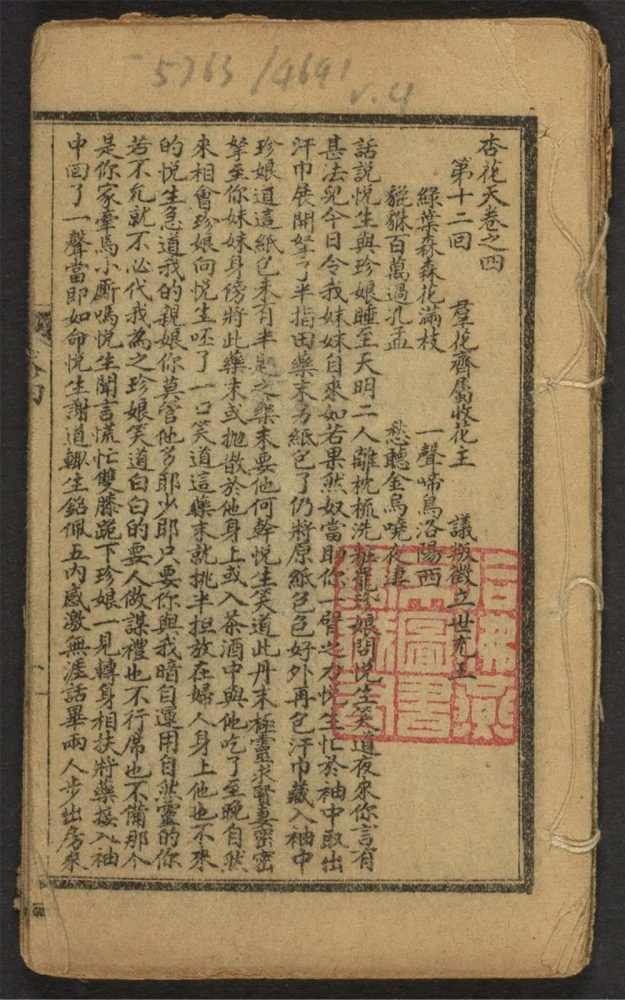 5763/4641
v.4
杏花天卷之四
第十二回 羣花齊屬收花主 議叛徵立世充王
綠葉森森花滿枝 一聲啼鳥洛陽西
貔貅百萬過孔孟 愁聽金烏曉夜
話說悅生與珍娘睡至天明二人離枕梳洗 罷珍娘問悅生笑道夜來你言有
甚法兒今日令我妹妹自來如若果然奴當助你一臂之力悅生忙於袖中取出
汗巾展開拏了半指田藥末另紙包了仍將原紙包包好外再包汗巾藏入袖中
珍娘道這紙包未有半 之藥末要他何幹悅生笑道此丹末極靈求賢妻密密
拏至你妹妹身傍將此藥末或拋散於他身上或入茶酒中與他吃了至晚自然
來相會珍娘向悅生呸了一口笑道這藥末就挑半担放在婦人身上他也不來
的悅生急道我的親娘你莫管他多耶少耶只要你與我暗自運用自然靈的你
若不允就不必代我為之珍娘笑道白白的要人做謀禮也不行席也不備那个
是你家牽馬小厮嗎悅生聞言慌忙雙膝跪下珍娘一見轉身相扶將藥接入袖
中回了一聲當即如命悅生謝道輙生銘佩五內感激無涯話畢兩人步出房來